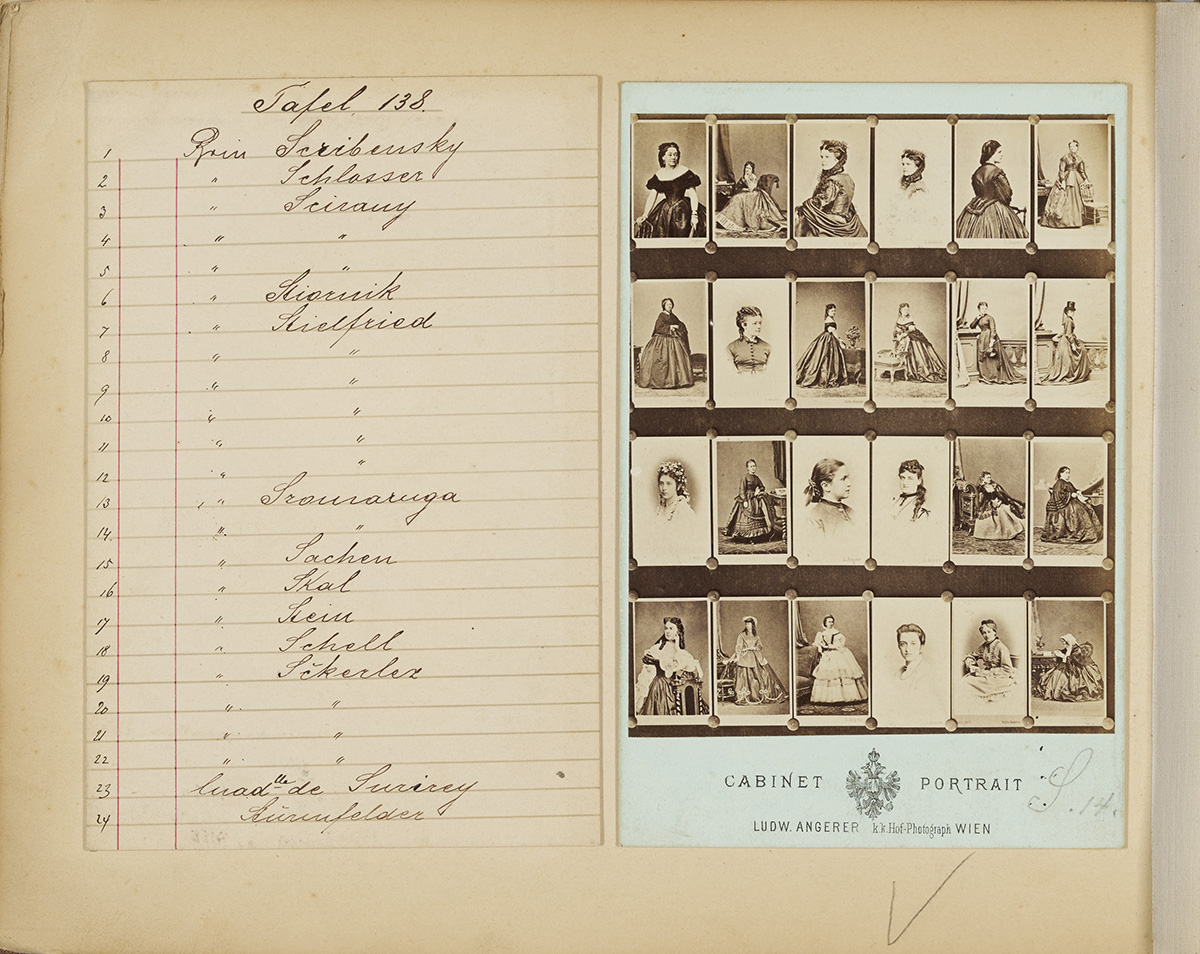 Tafel 138.
1 Bnin Scribensky
2 " Schlosser
3 " Scirany
4 " "
5 " "
6 " Stiornik
7 " Stielfried
8 " "
9 " "
10 " "
11 " "
12 " "
13 " Sromaruga
14. " "
15 " Sachen
16 " Skal
17 " Stein
18 " Schell
19 " Sckerlez
20 " "
21 " "
22 " "
23 de Surirey
24 Stürmfelder
CABINET PORTRAIT
S. 14.
LUDW. ANGERER k.k.Hof-Photograph WIEN